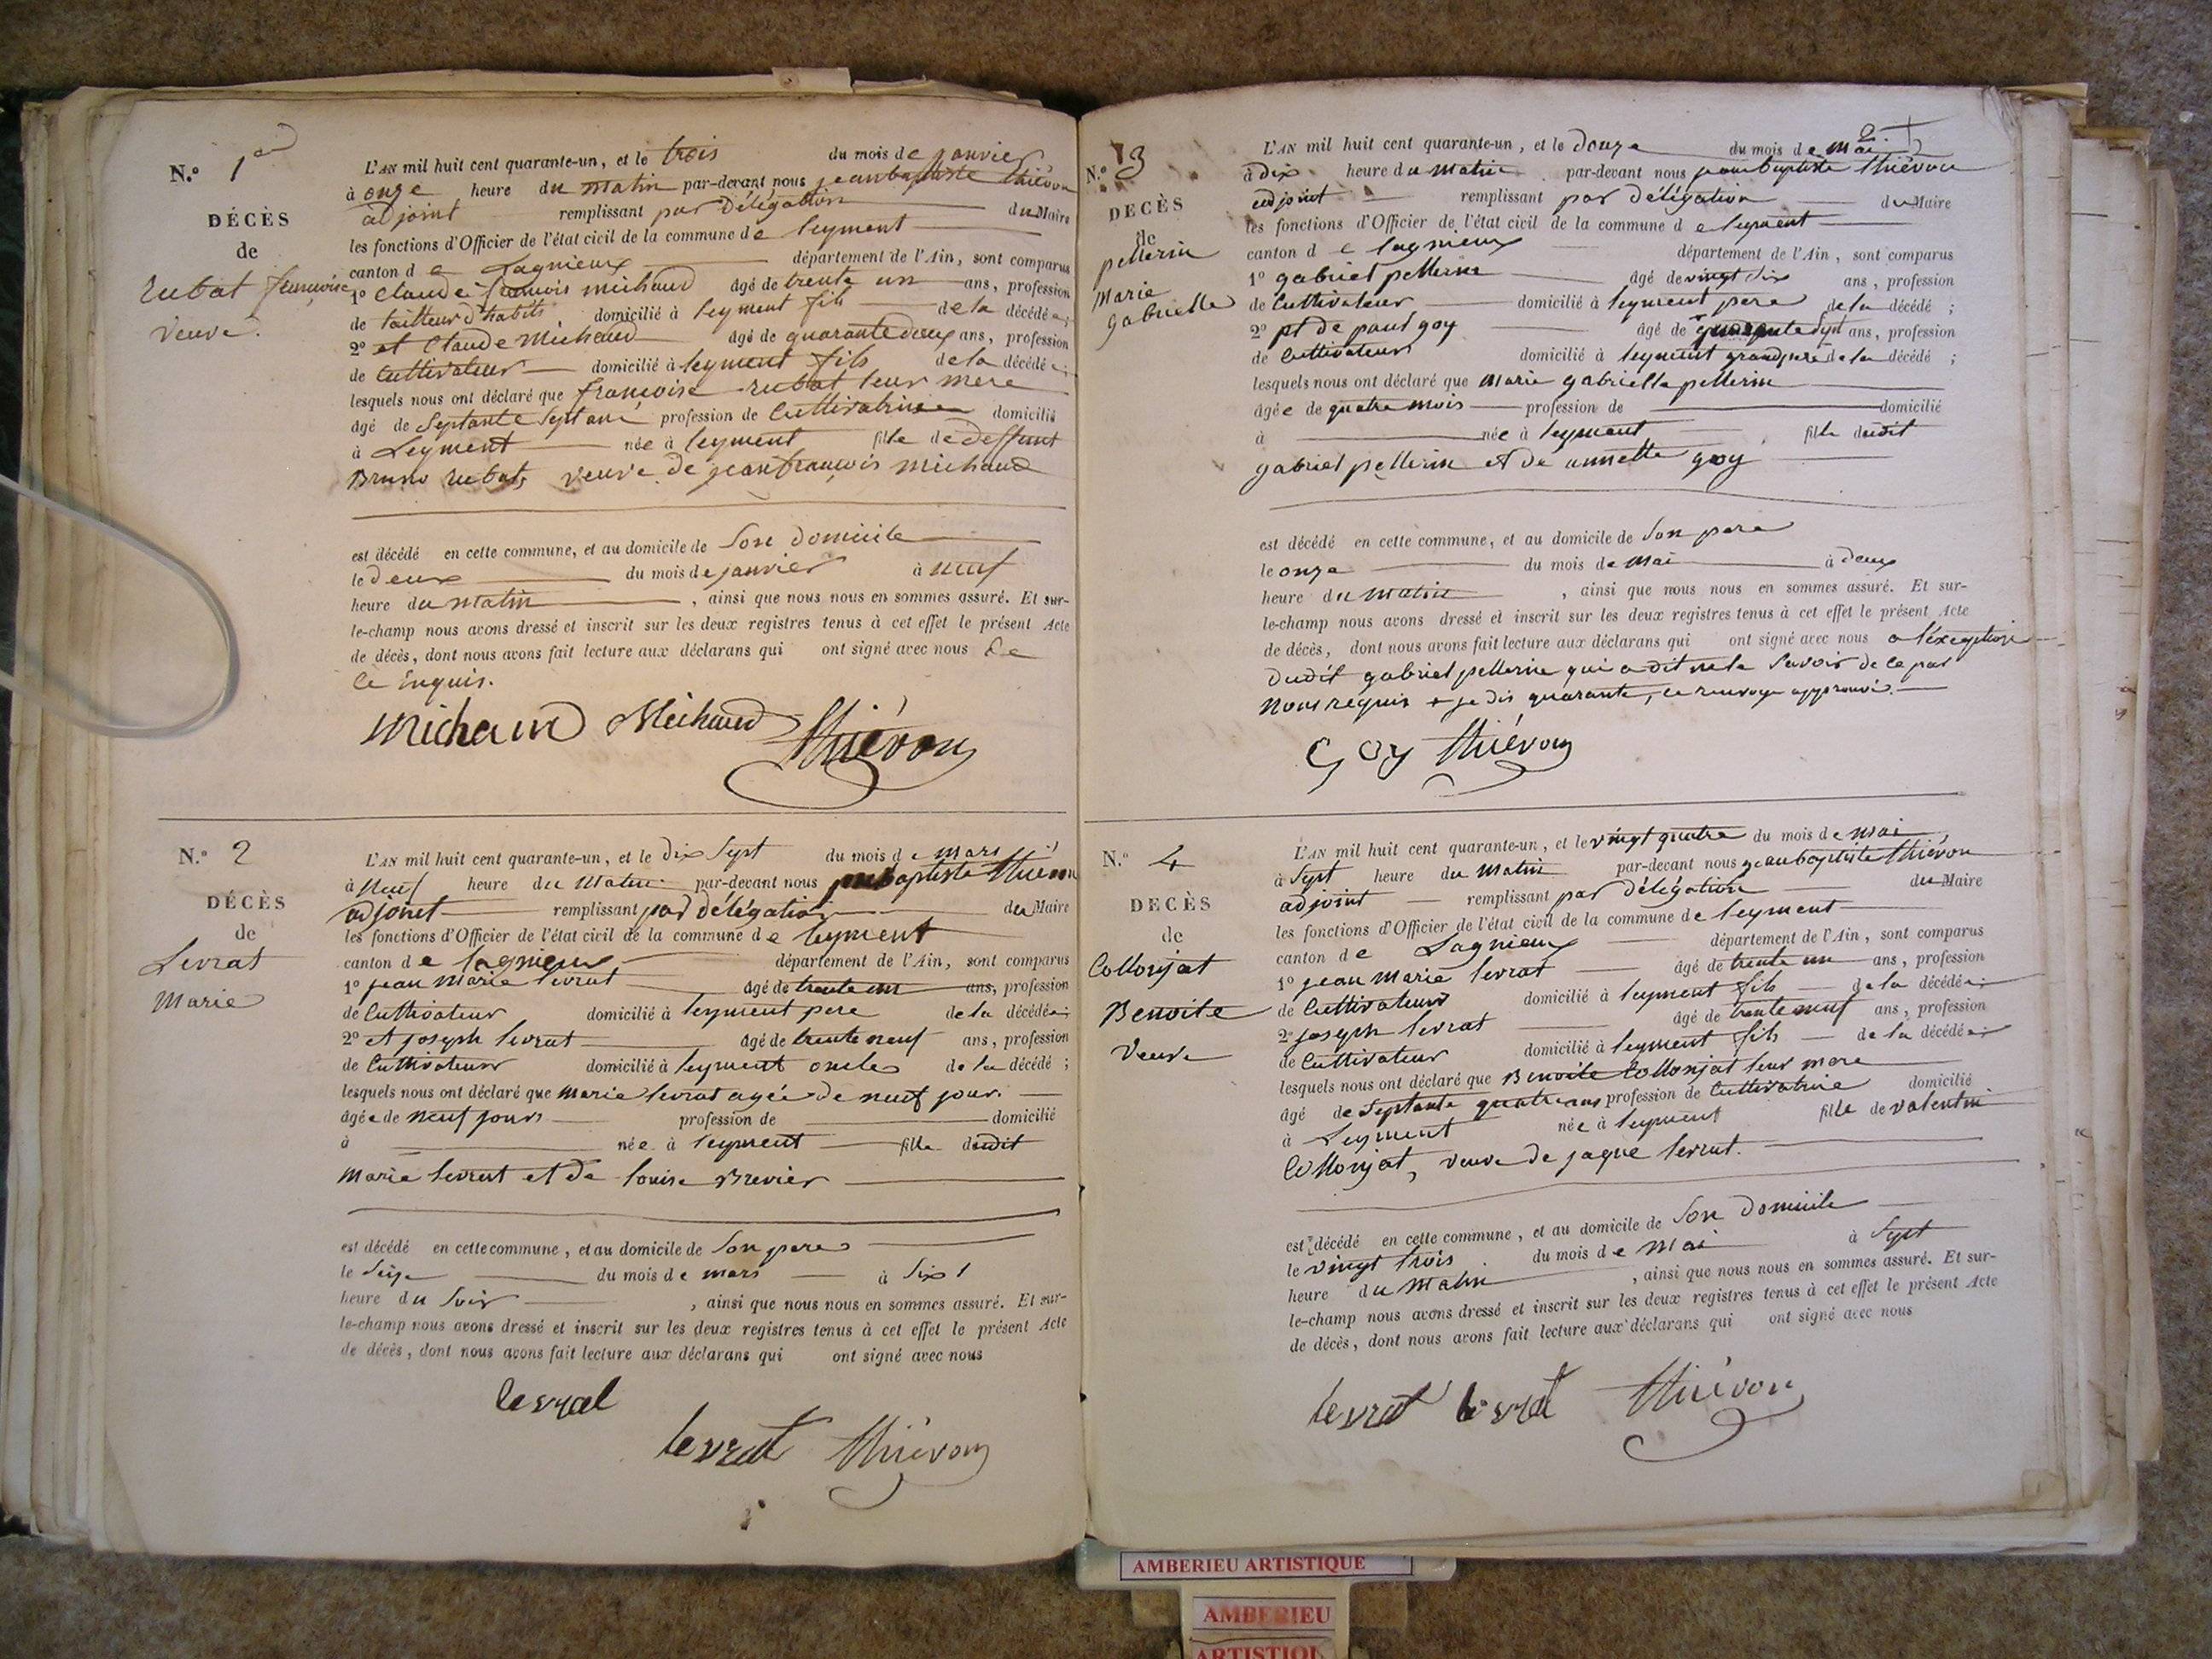 N.o 1er
DÉCÈS
de
rubat françoise
veuve.
L'AN mil huit cent quarante-un, et le trois du mois de janvier
à onze heure du matin par-devant nous jean baptiste thiévon
adjoint remplissant par délégation du Maire
les fonctions d'Officier de l'état civil de la commune de leyment
canton de Lagnieux département de l'Ain, sont comparus
1o claude françois michaud âgé de trente un ans, profession
de tailleur d'habits domicilié à leyment fils de la décédée;
2o et Claude Michaud âgé de quarante deux ans, profession
de Cultivateur domicilié à leyment fils de la décédée;
lesquels nous ont déclaré que françoise rubat leur mere
âgé de Septante Sept ans profession de Cultivatrice domicilié
à Leyment née à leyment fille de deffunt
Bruno rubat, veuve de jean françois michaud
est décédé en cette commune, et au domicile de Son domicile
le deux du mois de janvier à neuf
heure du matin, ainsi que nous nous en sommes assuré. Et sur-
le-champ nous avons dressé et inscrit sur les deux registres tenus à cet effet le présent Acte
de décès, dont nous avons fait lecture aux déclarans qui ont signé avec nous de
ce
Michaud Michaud thiévon
N.o 2
DÉCÈS
de
Levrat
Marie
L'AN mil huit cent quarante-un, et le dix Sept du mois de mars
à Neuf heure du Matin par-devant nous baptiste thiévon
adjoint remplissant par délégation du Maire
les fonctions d'Officier de l'état civil de la commune de leyment
canton de lagnieux département de l'Ain, sont comparus
1o jean Marie levrat âgé de trente un ans, profession
de Cultivateur domicilié à leyment pere de la décédée;
2o et joseph levrat âgé de trente neuf ans, profession
de Cultivateur domicilié à leyment oncle de la décédé;
lesquels nous ont déclaré que marie levrat agée de neuf jour.
âgée de neuf jours profession de domicilié
à née à leyment fille dudit
marie levrat et de louise Brevier
est décédé en cette commune, et au domicile de Son pere
le Seize du mois de mars à Six
heure du Soir, ainsi que nous nous en sommes assuré. Et sur-
le-champ nous avons dressé et inscrit sur les deux registres tenus à cet effet le présent Acte
de décès, dont nous avons fait lecture aux déclarans qui ont signé avec nous
levrat
levrat thiévon
N.o 3
DÉCÈS
de
pellerin
Marie
gabrielle
L'AN mil huit cent quarante-un, et le douze du mois de mai
à dix heure du matin par-devant nous jean baptiste thiévon
adjoint remplissant par délégation du Maire
les fonctions d'Officier de l'état civil de la commune de leyment
canton de lagnieux département de l'Ain, sont comparus
1o gabriel pellerin âgé de vingt dix ans, profession
de Cultivateur domicilié à leyment pere de la décédé;
2o et de paul goy âgé de Sept ans, profession
de Cultivateur domicilié à leyment grand pere de la décédé;
lesquels nous ont déclaré que marie gabrielle pellerin
âgée de quatre mois profession de domicilié
à née à leyment fille dudit
gabriel pellerin et de annette goy
est décédé en cette commune, et au domicile de Son pere
le onze du mois de mai à deux
heure du matin, ainsi que nous nous en sommes assuré. Et sur-
le-champ nous avons dressé et inscrit sur les deux registres tenus à cet effet le présent Acte
de décès, dont nous avons fait lecture aux déclarans qui ont signé avec nous a l'exception
dudit gabriel pellerin qui a dit ne le Savoir de ce par
nous requis + je dis quarante, ce renvoye approuvé.
Goy thiévon
N.o 4
DÉCÈS
de
Collonjat
Benoite
Veuve
L'AN mil huit cent quarante-un, et le vingt quatre du mois de mai
à Sept heure du matin par-devant nous jean baptiste thiévon
adjoint remplissant par délégation du Maire
les fonctions d'Officier de l'état civil de la commune de leyment
canton de Lagnieux département de l'Ain, sont comparus
1o jean Marie levrat âgé de trente un ans, profession
de Cultivateur domicilié à leyment fils de la décédée;
2o joseph levrat âgé de trente neuf ans, profession
de Cultivateur domicilié à leyment fils de la décédée;
lesquels nous ont déclaré que Benoite Collonjat leur mere
âgé de Septante quatre ans profession de Cultivatrice domicilié
à Leyment née à leyment fille de valentin
Collonjat, veuve de jaque levrat.
est décédé en cette commune, et au domicile de Son domicile
le vingt trois du mois de mai à Sept
heure du matin, ainsi que nous nous en sommes assuré. Et sur-
le-champ nous avons dressé et inscrit sur les deux registres tenus à cet effet le présent Acte
de décès, dont nous avons fait lecture aux déclarans qui ont signé avec nous
levrat levrat thiévon
AMBERIEU ARTISTIQUE
AMBERIEU